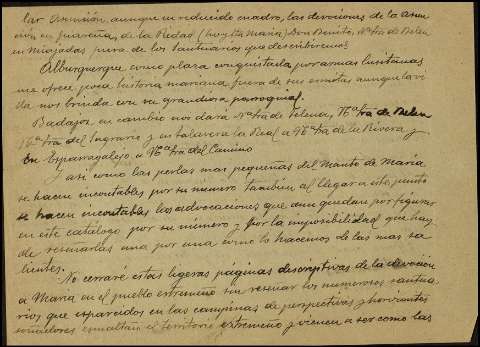 lar Asunción, aunque en reducido cuadro, las devociones de la Asun
ción en Guareña, de la Piedad (hoy Sta María) Don Benito, Nª Srª de Belen
en Miajadas pura de los Santuarios que describiremos.
Alburquerque como plaza conquistada por armas lusitanas
nos ofrece poca historia mariana fuera de sus ermitas aunque la vi
da nos brinda con su grandiosa parroquial.
Badajoz en cambio nos dara Nª Srª de Nª Srª de Belen
Nª Srª del Sagrario y en Talavera la Real a Nª Srª de la Rivera y
en Esparragalejo a Nª Srª del Camino
Y asi como las perlas mas pequeñas del Manto de Maria
se hacen incontables por su numero tambien al llegar a este punto
se hacen incontables las advocaciones que aun quedan por figurar
en este catálogo por su número y por la imposibilidad que hay
de reseñarlas una por una como lo hacemos de las mas sa
lientes.
No cerraré estas ligeras páginas descriptivas de la devoción
a Maria en el pueblo extremeño sin reseñar los numerosos santua
rios que esparcidos en las campiñas de perspectivas y horizontes
soñadores esmaltan el territorio extremeño y vienen a ser como las